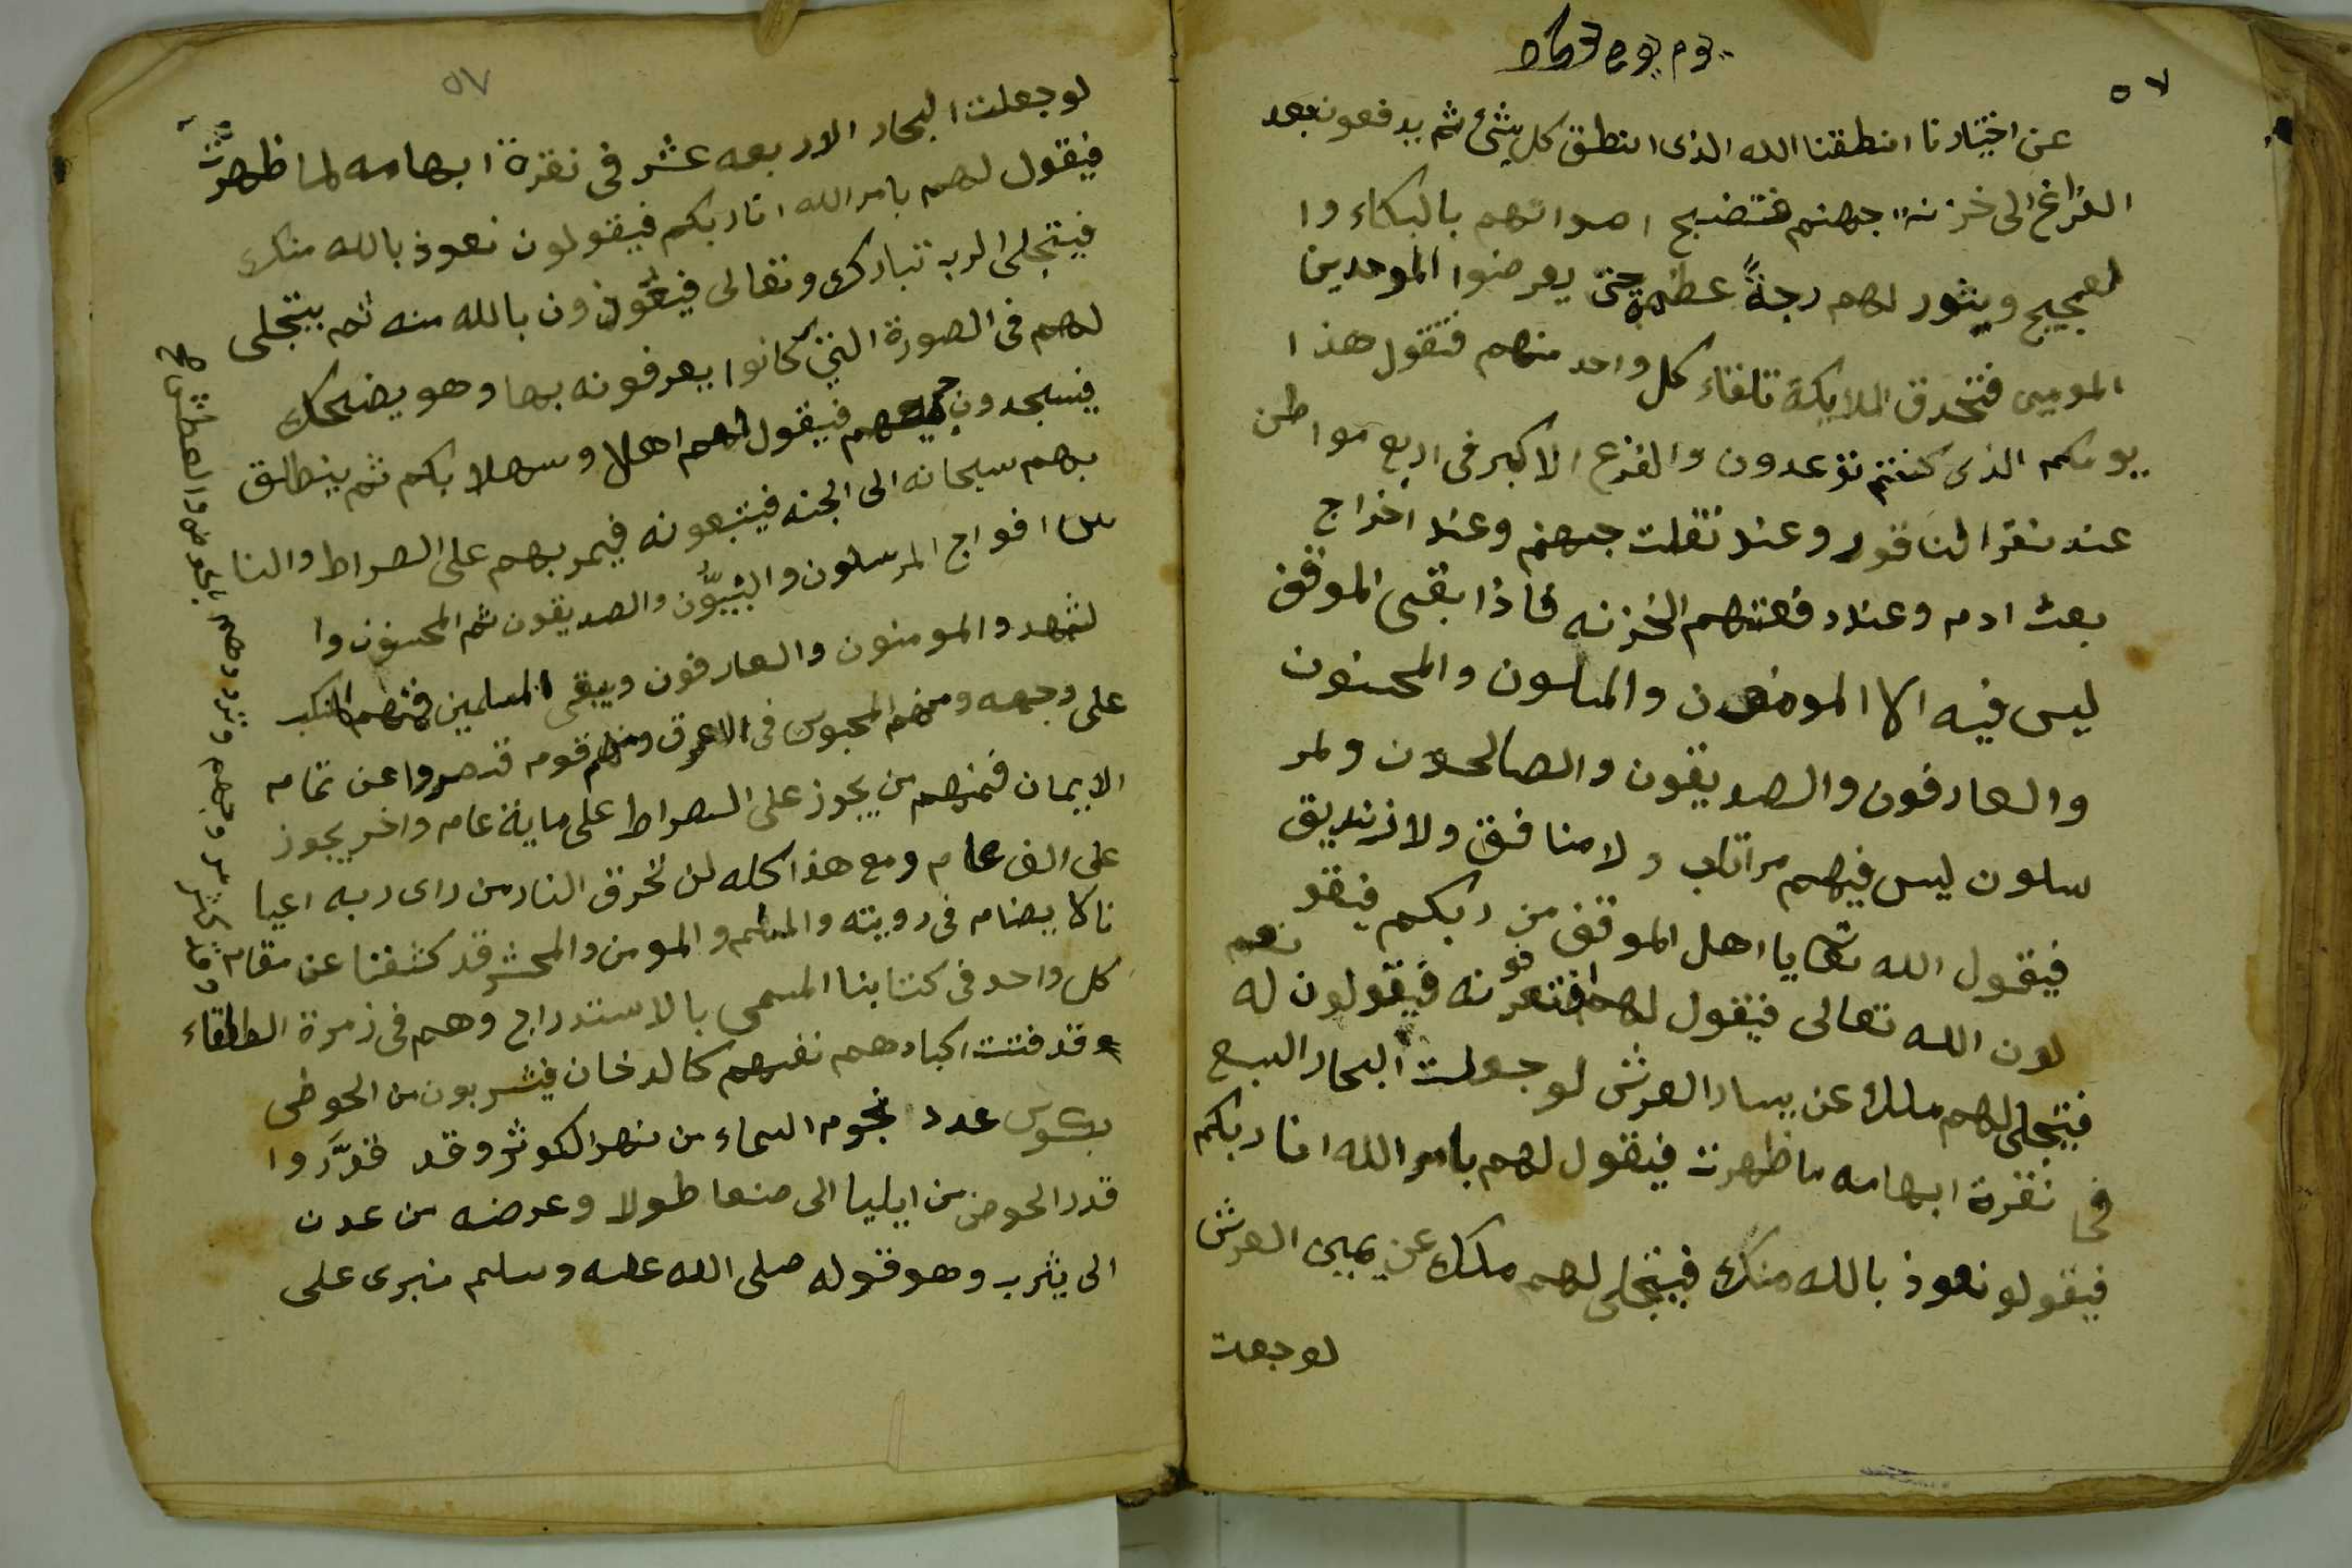 ٥٧
عن اختيارنا انطقنا الله الذى انطق كل شئ ثم يدفعو نعبد
الفراغ الى خزنة جهنم فتضبح اصواتهم بالبكاء وا
لعجيج ويثور لهم رجةً عظيمة حتى يعرضوا الموحدين
المومين فتحدق الملايكة تلقاء كل واحد منهم فتقول هذا
يومكم الذى كنتم توعدون والفزع الاكبر فى اربع مواطن
عند نقر الناقور وعند تفلت جهنم وعند اخراج
بعث ادم وعند دفعتهم الخزنه فاذا بقى الموقف
ليس فيه الا المومنون والمسلمون والمحسنون
والعارفون والصديقون والصالحون ولمر
سلون ليس فيهم مرتاب ولا منافق ولا زنديق
فيقول الله تعا يا اهل الموقف من ربكم فيقو
لون الله تعالى فيقول لهم افتعرفونه فيقولون له نعم
فيتجلى لهم ملك عن يسار العرش لو جعلت البحار السبع
فى نقرة ابهامه ما ظهرت فيقول لهم بامر الله انا ربكم
فيقولو نعوذ بالله منك فيتجلى لهم ملك عن يمين العرش
لو جعت
٥٧
لو جعلت البحار الاربعه عشر فى نقرة ابهامه لما ظهرت
فيقول لهم بامر الله انا ربكم فيقولون نعوذ بالله منك
فيتجلى الرب تبارك وتعالى فيتعوذون بالله منه ثم يتجلى
لهم فى الصورة التى كانوا يعرفونه بها وهو يضحك
فيسجدون جميعهم فيقول لهم اهلا وسهلا بكم ثم ينطلق
بهم سبحانه الى الجنه فيتبعونه فيمر بهم على الصراط والنا
س افواج المرسلون والنبيّون والصديقون ثم المحسنون وا
لشهد والمومنون والعارفون ويبقى المسلمين فمنهم المنكب
على وجهه ومنهم المحبوس فى الاعرق ومنهم قوم قصروا عن تمام
الايمان فمنهم من يجوز على الصراط على ماية عام واخر يجوز
على الف عام ومع هذا كله لن تحرق النار من راى ربه اعيا
نا لا يضام فى رويته والمسلم والمومن والمحشر قد كشفنا عن مقام
كل واحد فى كتابنا المسمى بالاستدراج وهم فى زمرة الطلقاء
وقد فتت اكبادهم نفسهم كالدخان فيشربون من الحوض
بكوس عدد نجوم السماء من نهر الكوثر وقد قدَّروا
قدر الحوض من ايليا الى صنعا طولا وعرضه من عدن
الى يثرب وهو قوله صلى الله عليه وسلم منبرى على